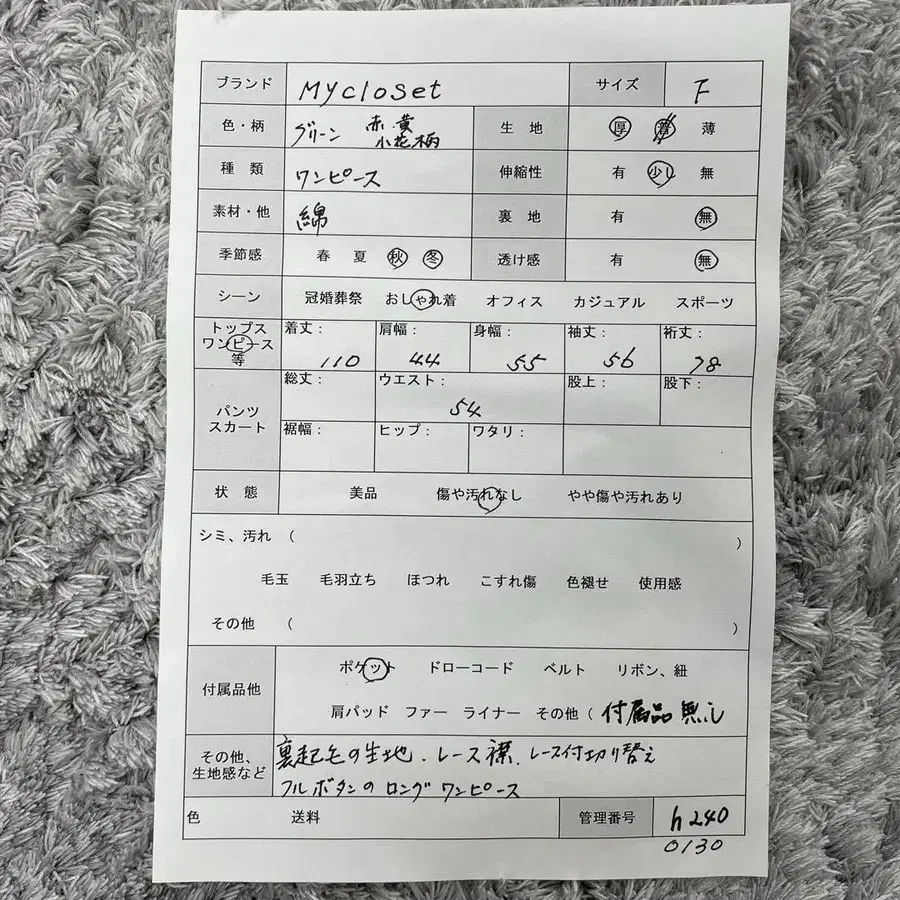 ブランド MYcloset サイズ F
色・柄 グリーン 赤.黄 小花柄 生地 厚 普 薄
種類 ワンピース 伸縮性 有 少し 無
素材・他 綿 裏地 有 無
季節感 春 夏 秋 冬 透け感 有 無
シーン 冠婚葬祭 おしゃれ着 オフィス カジュアル スポーツ
トップス ワンピース 等 着丈: 110 肩幅: 44 身幅: 55 袖丈: 56 裄丈: 78
パンツ スカート 総丈: ウエスト: 54 股上: 股下:
裾幅: ヒップ: ワタリ:
状態 美品 傷や汚れなし やや傷や汚れあり
シミ、汚れ ( )
毛玉 毛羽立ち ほつれ こすれ傷 色褪せ 使用感
その他 ( )
付属品他 ポケット ドローコード ベルト リボン、紐
肩パッド ファー ライナー その他 ( 付属品無し
その他、 裏起毛の生地.レース襟.レース付切り替え
生地感など フルボタンのロングワンピース
色 送料 管理番号 h240
0130